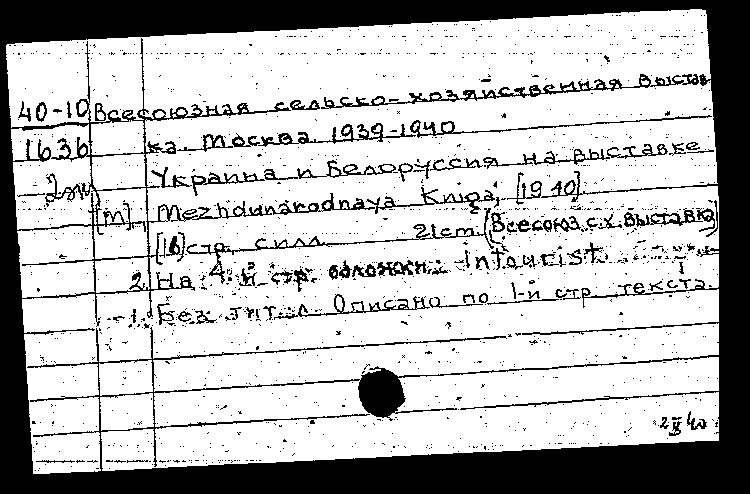 40-10 Всесоюзная сельско-хозяйственная выстав
1636 ка. Москва 1939-1940
2эк Украина и Белоруссия на выставке
[M]., Mezhdunarodnaya Kniga, [1940]
[16] стр. с илл. 21 cm. (Всесоюз. с. х. выставка)
2. На 4-й стр. обложки: Intourist
1. Без тит. л. Описано по 1-й стр. текста.
2 IX 40